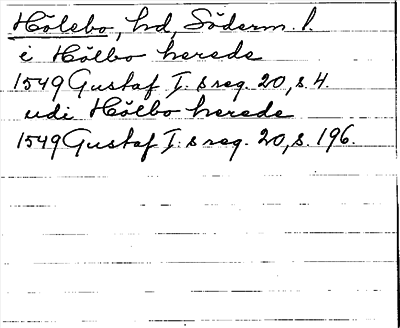 Hölebo, hd, Söderm. l.
i Hölbo herede
1549 Gustaf I:s reg. 20, s. 4.
udi Hölbo herede
1549 Gustaf I:s reg. 20, s. 196.